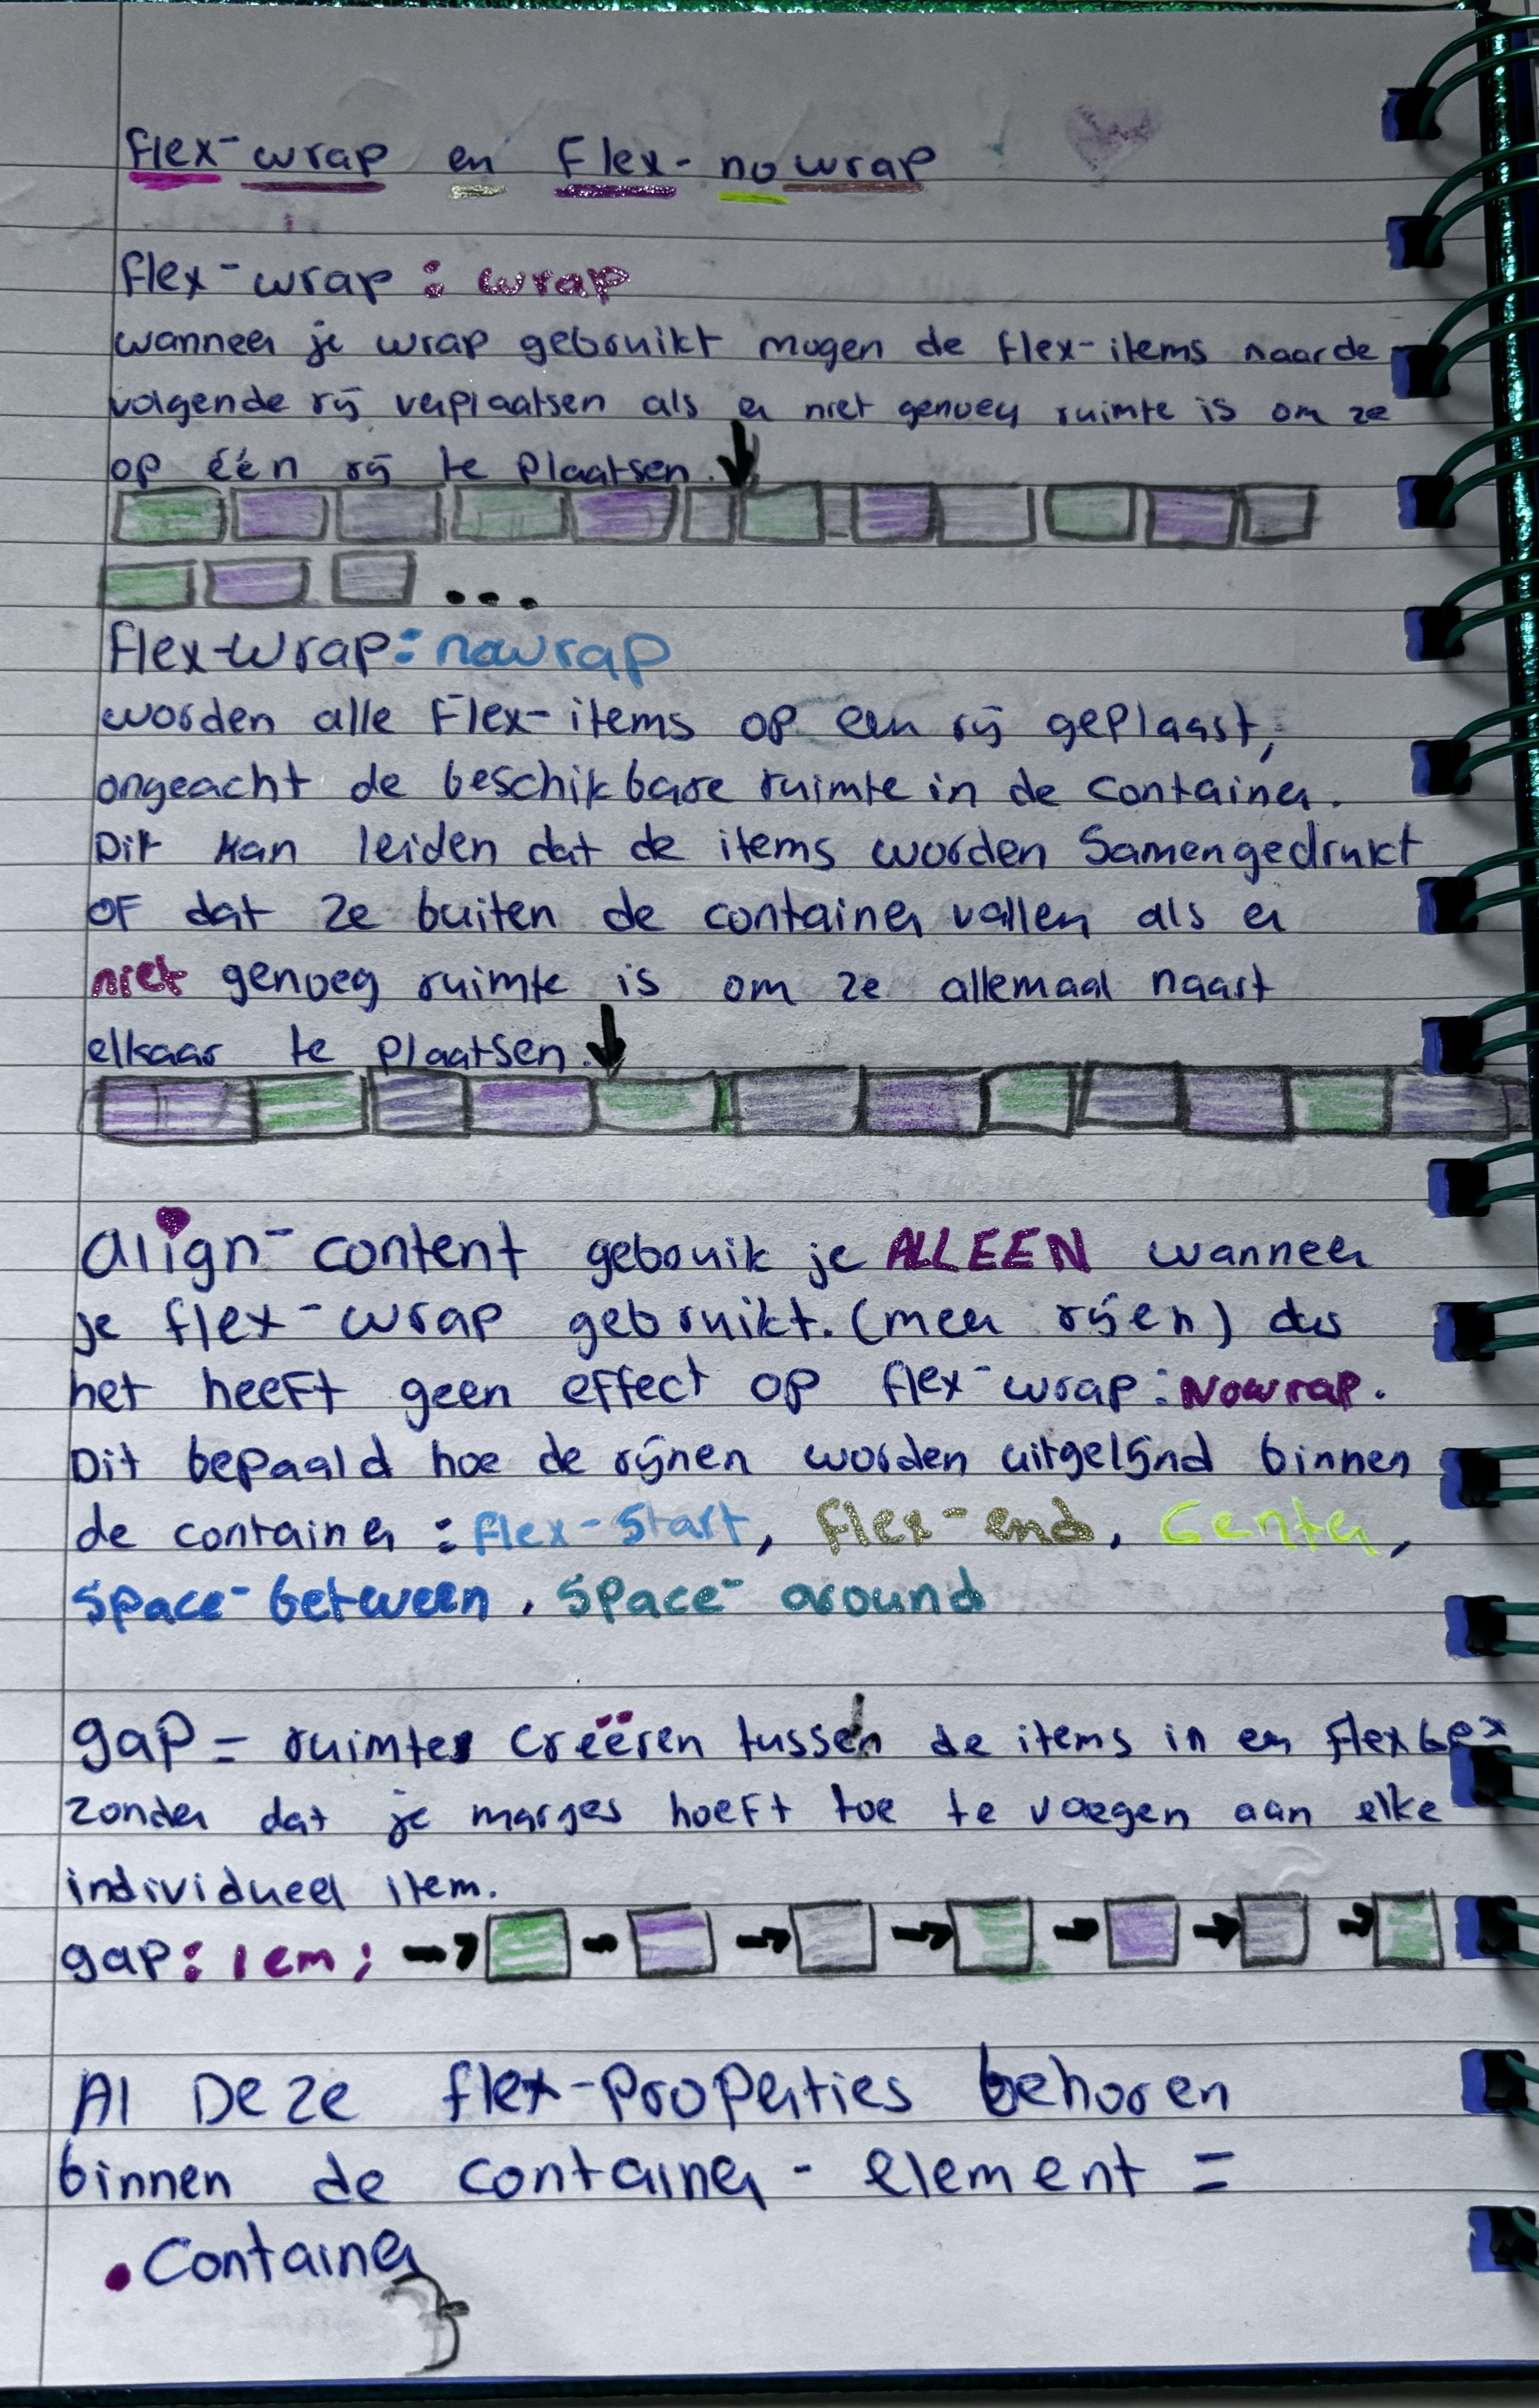 flex-wrap en Flex-nowrap
flex-wrap: wrap
wanneer je wrap gebruikt mogen de flex-items naar de
volgende rij verplaatsen als er niet genoeg ruimte is om ze
op één rij te plaatsen.
...
flex-wrap: nowrap
worden alle Flex-items op een rij geplaast,
ongeacht de beschikbare ruimte in de container.
Dit kan leiden dat de items worden samengedrukt
OF dat ze buiten de container vallen als er
niet genoeg ruimte is om ze allemaal naast
elkaar te plaatsen.
align-content gebruik je ALLEEN wanneer
je flex-wrap gebruikt. (meer rijen) dus
het heeft geen effect op flex-wrap: Nowrap.
Dit bepaald hoe de rijnen worden uitgelijnd binnen
de container: flex-start, flex-end, Center,
space-between, space-around
gap = ruimtes creëeren tussen de items in en flexbox
zonder dat je marges hoeft toe te voegen aan elke
individueel item.
gap: 1em;
Al Deze flex-properties behoren
binnen de container-element =
.Container